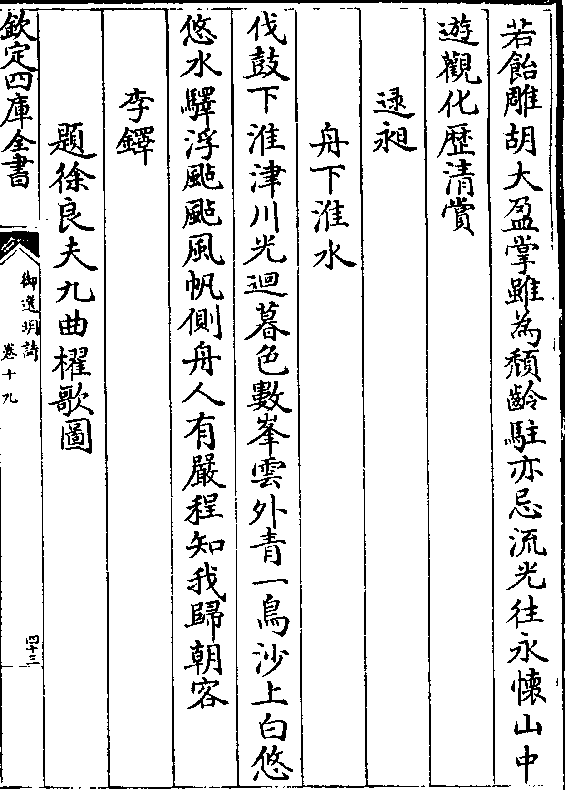 若飴雕胡大盈掌雖為頹齡駐亦忌流光往永懷山中
遊觀化歷清賞
逯昶
舟下淮水
伐鼓下淮津川光迴暮色數峯雲外青一鳥沙上白悠
悠水驛浮颭颭風帆側舟人有嚴程知我歸朝客
李鐸
題徐良夫九曲櫂歌圖
欽定四庫全書
御選明詩
卷十九
四十三